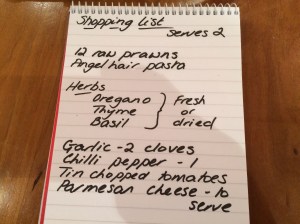 Shopping list
serves 2
12 raw prawns
Angel hair pasta
Herbs
Oregano
Thyme
Basil
Fresh
or
dried
Garlic - 2 cloves
Chilli pepper - 1
Tin chopped tomatoes
Parmesan cheese - to
serve